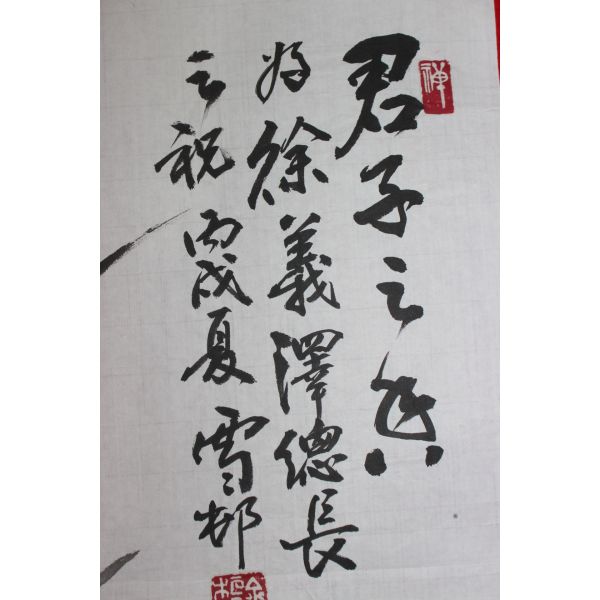 君子之香
為徐義澤總長
之祝 丙戌夏 雪邨